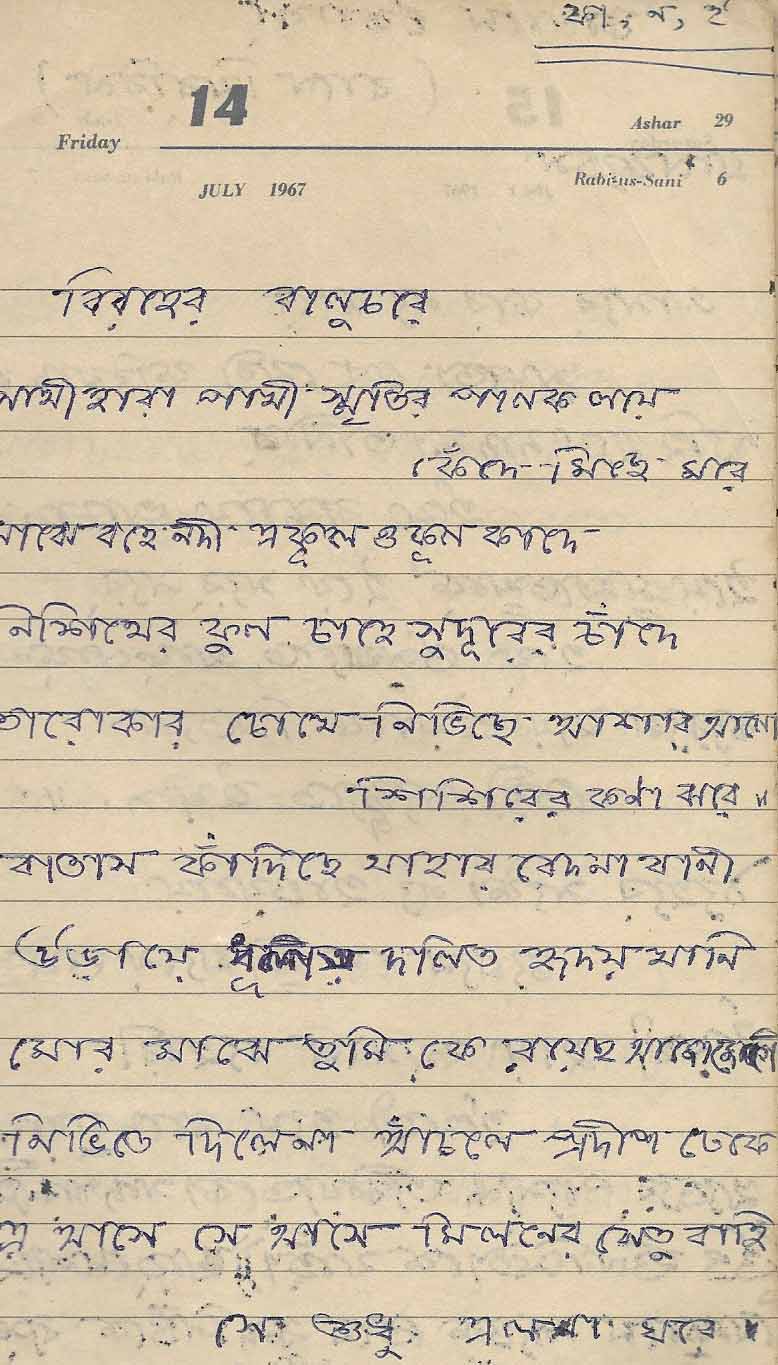 কা, ন, ই
14
Friday
Ashar 29
JULY 1967
Rabi-us-Sani 6
বিরহের বালুচরে
সাথী হারা পাখী স্মৃতির পালক লয়ে
কেঁদে মিছে মরে
মাঝে বহে নদী একূল ওকূল কাদে
নিশিথের ফুল চাহে সুদূরের চাঁদে
তারোকার চোখে নিভিছে আশার আলো
শিশিরের কণা ঝরে ॥
বাতাস কাঁদিছে যাহার বেদনা বানী
উড়ায়ে ধূলায় দলিত হৃদয় খানি
মোর মাঝে তুমি কে রয়েছ
নিভিতে দিলেনা আঁচলে প্রদীপ ঢেকে
আসে সে আসে মিলনের সেতু বাহি
সে শুধু এলনা ঘরে ॥